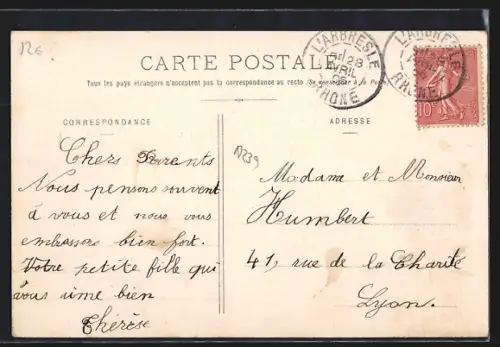 12€
CARTE POSTALE
Tous les pays étrangers n'acceptent pas la correspondance au recto (Se renseigner à la Poste)
L'ARBRESLE
28
AVRIL
RHONE
L'ARBRESLE
RHONE
10
CORRESPONDANCE
ADRESSE
A239
Chers Parents
Nous pensons souvent
à vous et nous vous
embrassons bien fort.
Votre petite fille qui
vous aime bien
Thérèse
Madame et Monsieur
Humbert
41, rue de la Charité
Lyon.